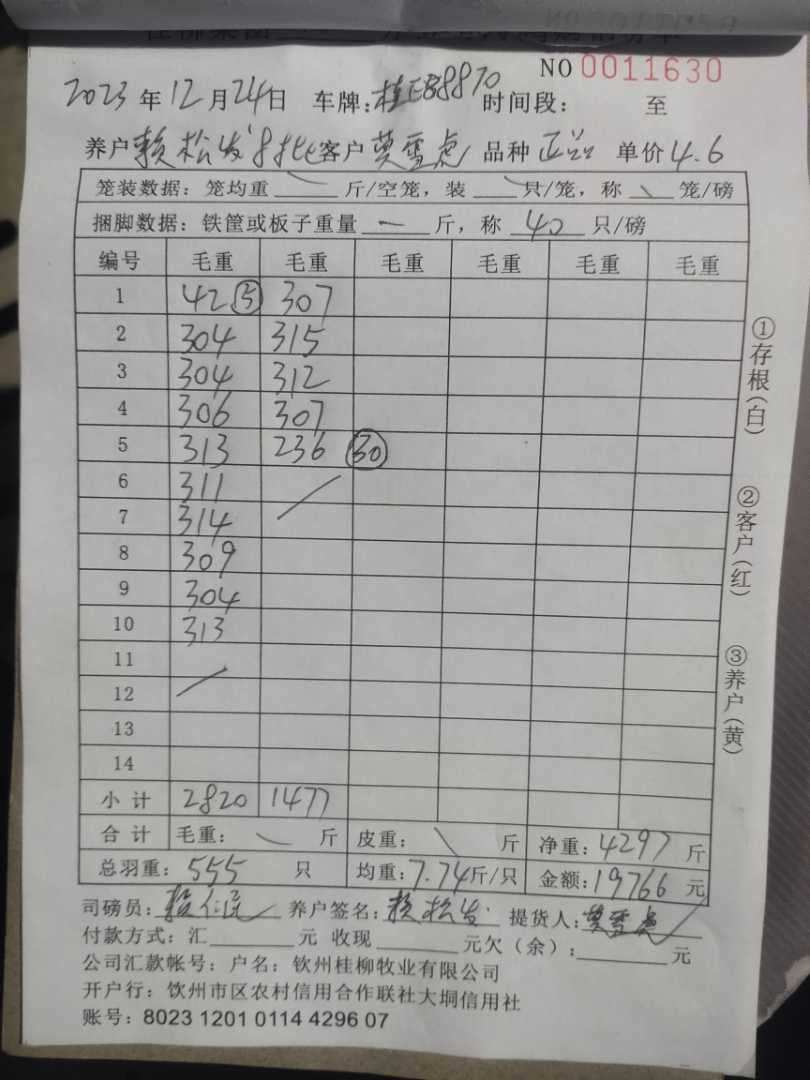 NO 0011630
2023年12月24日 车牌:桂E88870 时间段: 至
养户 赖松发8批 客户 莫雪虎 品种 正品 单价 4.6
笼装数据: 笼均重 斤/空笼, 装 只/笼, 称 笼/磅
捆脚数据: 铁筐或板子重量 一 斤, 称 40 只/磅
编号 毛重 毛重 毛重 毛重 毛重 毛重
1 42 ⑤ 307
2 304 315
3 304 312
4 306 307
5 313 236 ㉚
6 311
7 314
8 309
9 304
10 313
11
12
13
14
小计 2820 1477
合计 毛重: 斤 皮重: 斤 净重: 4297 斤
总羽重: 555 只 均重: 7.74 斤/只 金额: 19766 元
司磅员: 养户签名: 赖松发 提货人: 莫雪虎
付款方式: 汇 元 收现 元欠(余): 元
公司汇款帐号: 户名: 钦州桂柳牧业有限公司
开户行: 钦州市区农村信用合作联社大垌信用社
账号: 8023 1201 0114 4296 07
①存根(白)
②客户(红)
③养户(黄)